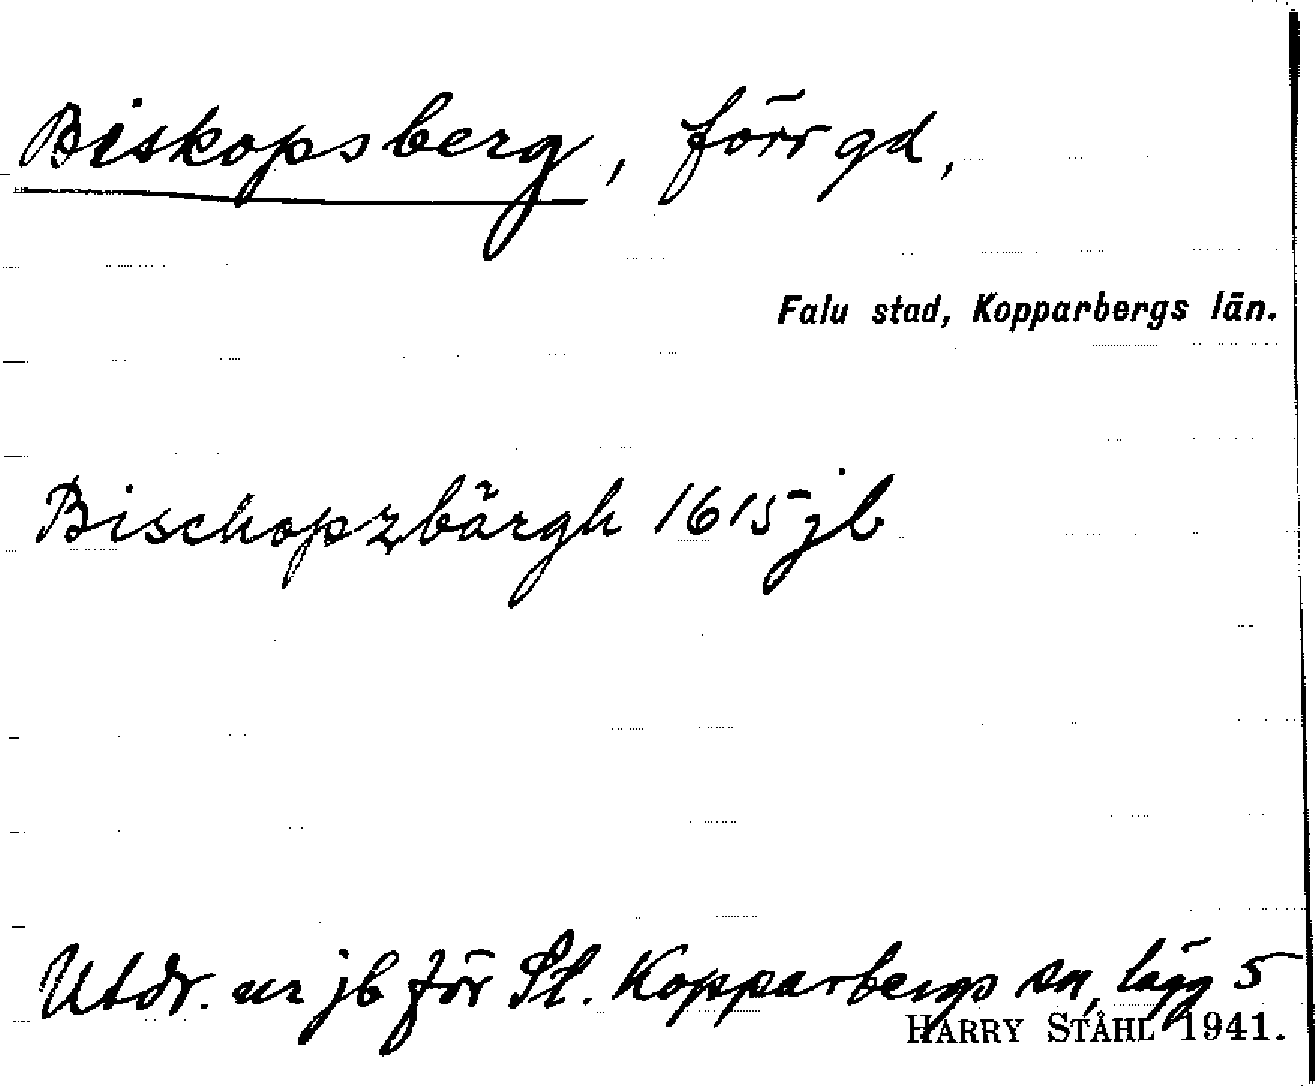 Biskopsberg, förr gd,
Falu stad, Kopparbergs län.
Bischopzbärgh 1615 jb
Utdr. ur jb för St. Kopparbergs sn, lägg 5
HARRY STÅHL 1941.